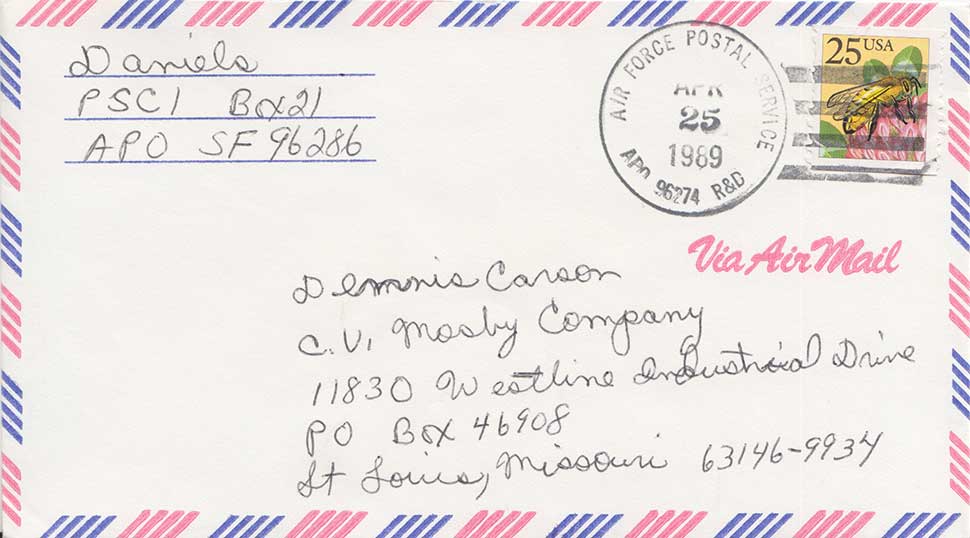 Daniels
PSC1 Box 21
APO SF 96286
AIR FORCE POSTAL SERVICE
APR
25
1989
APO 96274 R&D
25 USA
Via Air Mail
Dennis Carson
C.V. Mosby Company
11830 Westline Industrial Drive
PO Box 46908
St Louis, Missouri 63146-9934